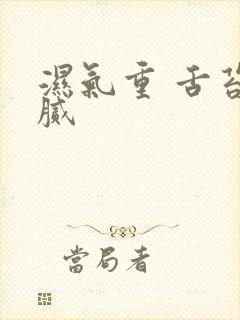 濕氣重 舌苔
膩
當局者